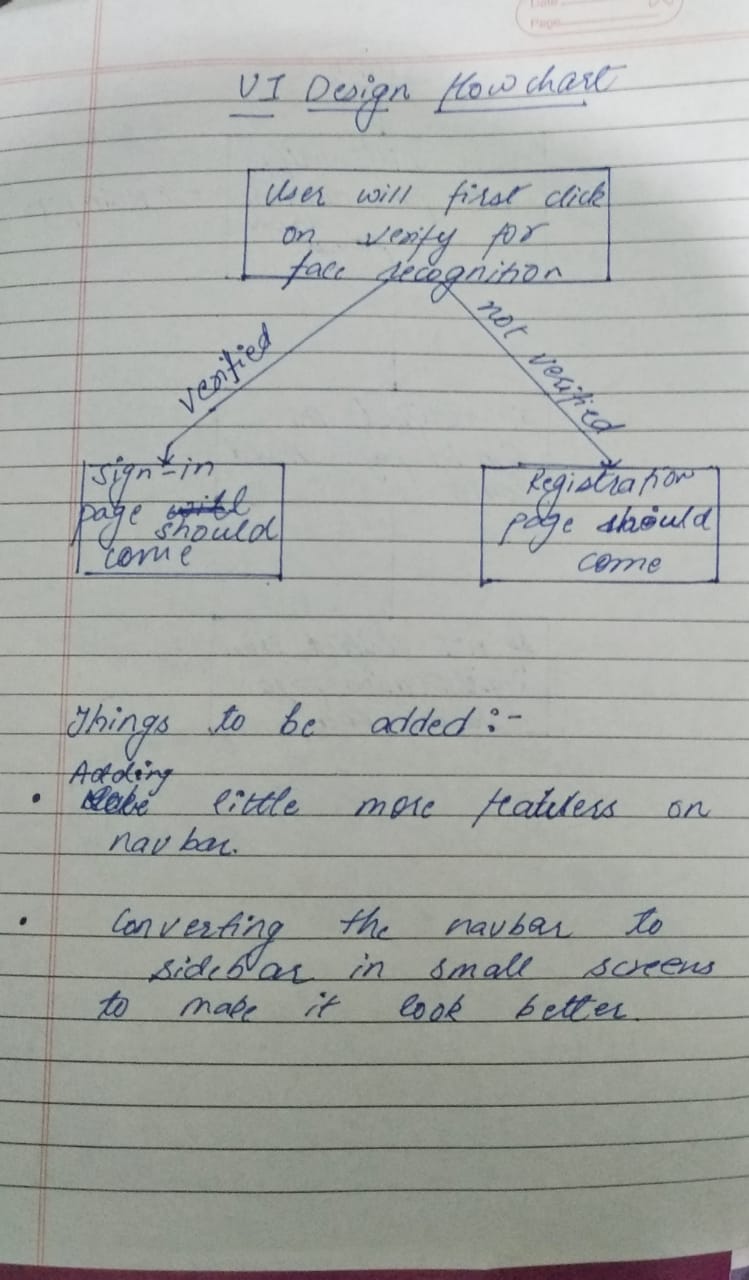 Date
Page
UI Design Flowchart
User will first click
on verify for
face recognition
verified
not verified
Sign-in
page
should
come
Registration
page should
come
Things to be added :-
Adding
• little more features on
navbar.
• Converting the navbar to
sidebar in small screens
to make it look better.